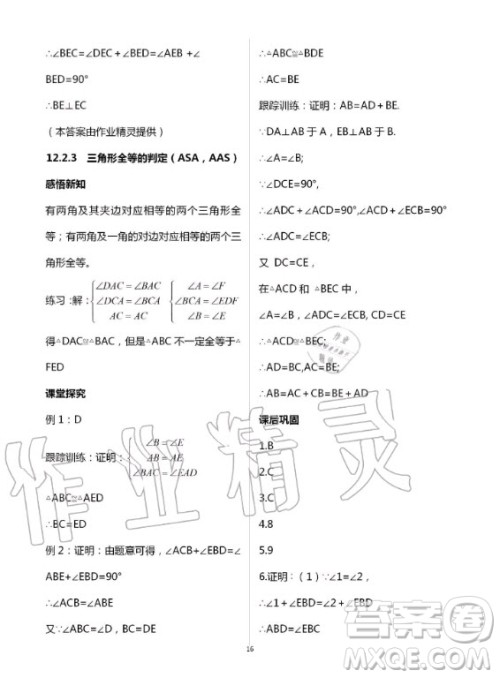 ∴∠BEC=∠DEC+∠BED=∠AEB +∠
BED=90°
∴BE⊥EC
(本答案由作业精灵提供)
12.2.3 三角形全等的判定(ASA,AAS)
感悟新知
有两角及其夹边对应相等的两个三角形全
等;有两角及一角的对边对应相等的两个三
角形全等。
练习:解:{∠DAC=∠BAC {∠A=∠F
∠DCA=∠BCA ∠BCA=∠EDF
AC=AC ∠B=∠E
得△DAC≌△BAC,但是△ABC 不一定全等于△
FED
课堂探究
例 1:D
跟踪训练:证明:{∠B=∠E
AB=AE
∠BAC=∠EAD
△ABC≌△AED
∴BC=ED
例 2:证明:由题意可得,∠ACB+∠EBD=∠
ABE+∠EBD=90°
∴∠ACB=∠ABE
又∵∠ABC=∠D,BC=DB
∴△ABC≌△BDE
∴AC=BE
跟踪训练:证明:AB=AD+BE.
∵DA⊥AB 于 A,EB⊥AB 于 B,
∴∠A=∠B;
∵∠DCE=90°,
∴∠ADC +∠ACD=90°,∠ACD+∠ECB=90°
∴∠ADC=∠ECB;
又 DC=CE,
在△ACD 和 △BEC 中,
∠A=∠B,∠ADC=∠ECB,DC=CE
∴△ACD≌△BEC;
∴AD=BC,AC=BE;
∴AB=AC+CB=BE+AD
课后巩固
1.B
2.C
3.C
4.8
5.9
6.证明:(1)∵∠1=∠2,
∴∠1+∠EBD=∠2+∠EBD
∴∠ABD=∠EBC
16
作业精灵
答案圈
MXQE.COM